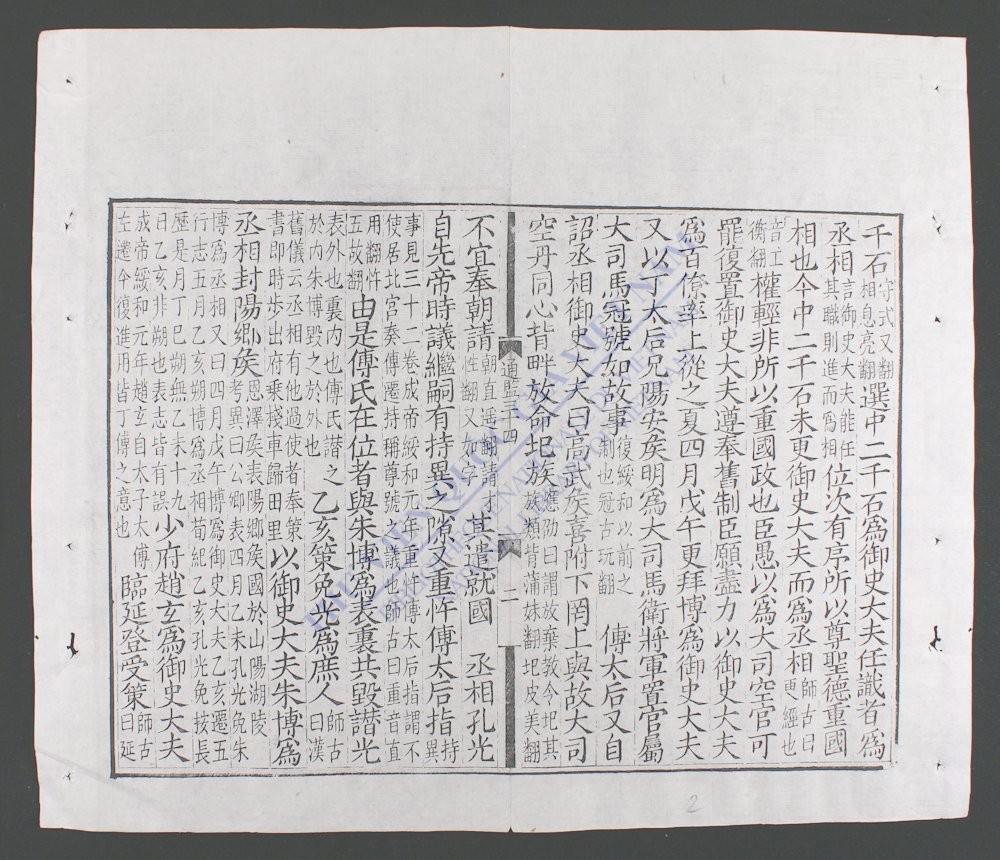 千石守式又翻相息亮翻選中二千石爲御史大夫任職者爲
丞相言御史大夫能任其職則進而爲相位次有序所以尊聖德重國
相也今中二千石未更御史大夫而爲丞相師古曰更經也
音工衡翻權輕非所以重國政也臣愚以爲大司空官可
罷復置御史大夫遵奉舊制臣願盡力以御史大夫
爲百僚率上從之夏四月戊午更拜博爲御史大夫
又以丁太后兄陽安矦明爲大司馬衛將軍置官屬
大司馬冠號如故事復綏和以前之制也冠古玩翻 傅太后又自
詔丞相御史大夫曰高武矦喜附下罔上與故大司
空丹同心背畔放命圯族應劭曰謂放棄教令圯其族類背蒲妹翻圯皮美翻
通監三十四 二
不宜奉朝請朝直遥翻請才性翻又如字其遣就國 丞相孔光
自先帝時議繼嗣有持異之隙又重忤傅太后指持異
事見三十二卷成帝綏和元年重忤傅太后指謂不使居北宫奏傅遷持稱尊號之議也師古曰重音直
用翻忤五故翻由是傅氏在位者與朱博爲表裏共毀譖光
表外也裏内也傅氏譖之於内朱博毀之於外也乙亥策免光爲庶人師古曰漢
舊儀云丞相有他過使者奉策書即時步出府乘棧車歸田里以御史大夫朱博爲
丞相封陽鄉矦恩澤矦表陽鄉矦國於山陽湖陵考異曰公卿表四月乙未孔光免朱
博爲丞相又曰四月戊午博爲御史大夫乙亥遷五行志五月乙亥朔博爲丞相荀紀乙亥孔光免按長
歷是月丁巳朔無乙未十九日乙亥非朔也表志皆有誤少府趙玄爲御史大夫
成帝綏和元年趙玄自太子太傅左遷今復進用皆丁傅之意也臨延登受策師古曰延
THƯ VIỆN QUỐC GIA VIỆT NAM
2